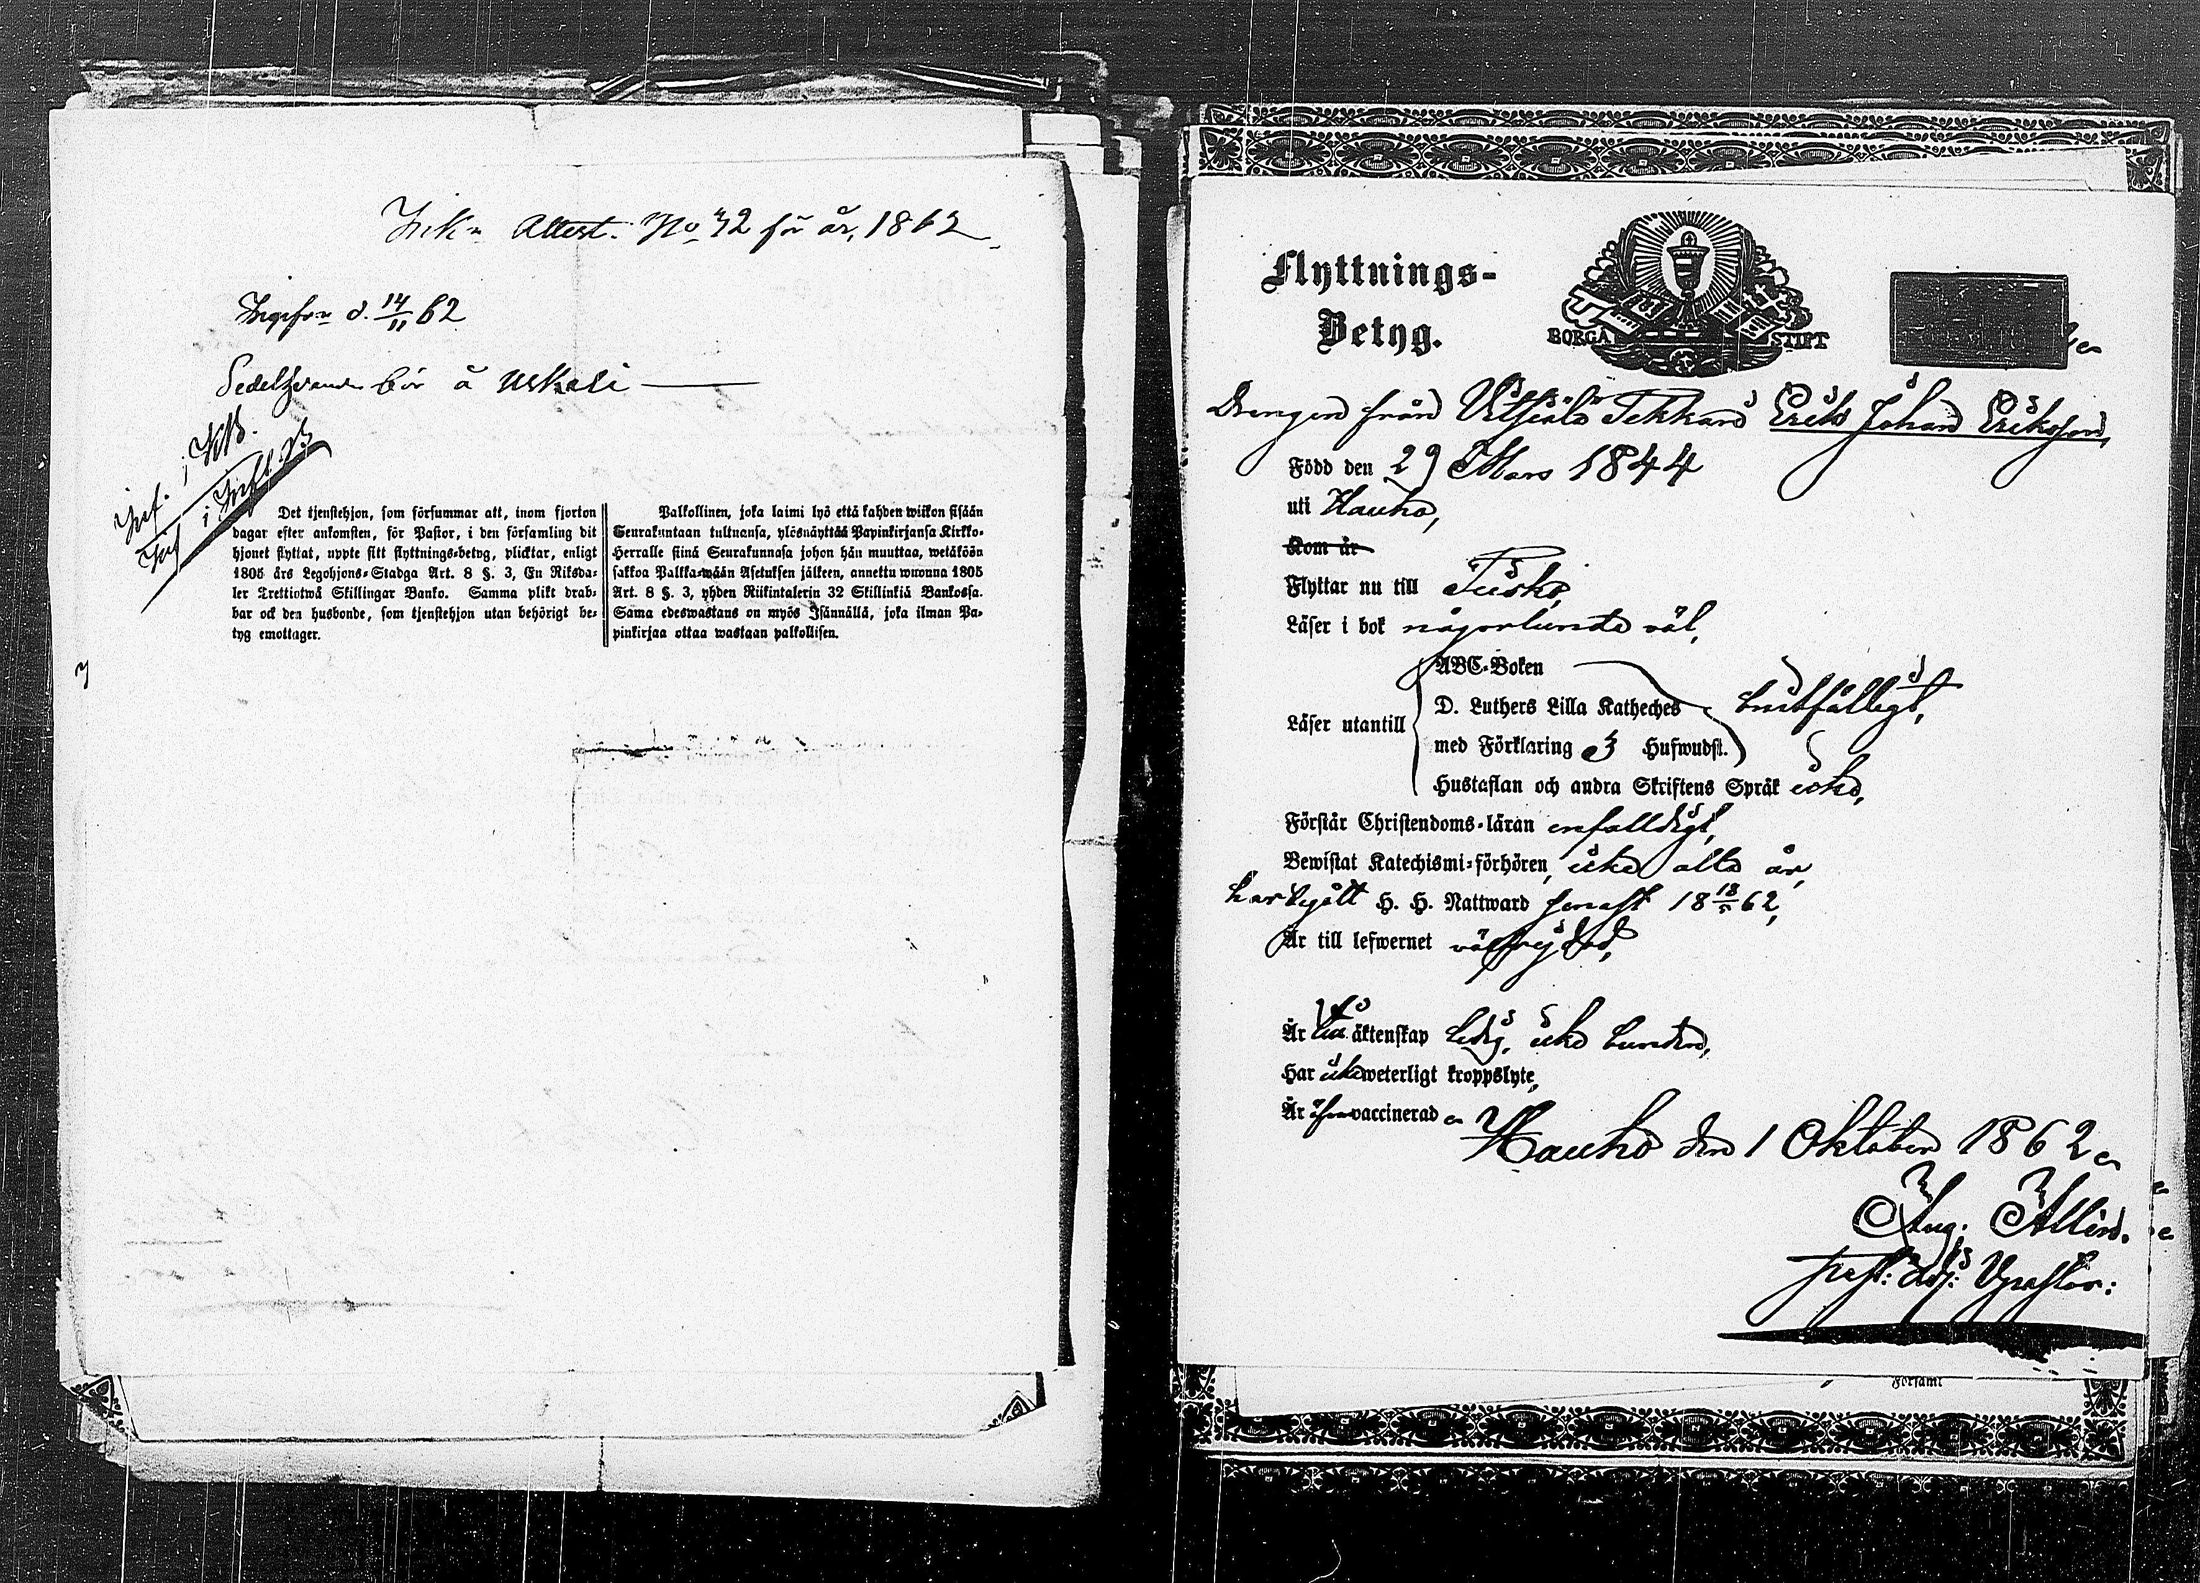 Attest. No 42 för år, 1862
d. 14/11 62
bör å Uskali
Inf. i KB.
Det tjenstehjon, som försummar att, inom fjorton
dagar efter ankomsten, för Pastor, i den församling dit
hjonet flyttat, uppte sitt flyttnings-betyg, plicktar, enligt
1805 års Legohjons-Stadga Art. 8 §. 3, En Riksda-
ler Trettiotwå Skillingar Banko. Samma plikt drab-
bar ock den husbonde, som tjenstehjon utan behörigt be-
tyg emottager.
Palkollinen, joka laimi lyö että kahden wiikon sisään
Seurakuntaan tultuansa, ylösnäyttää Papinkirjansa Kirkko-
Herralle siinä Seurakunnasa johon hän muuttaa, wetäköön
sakkoa Palkka-wään Asetuksen jälkeen, annettu wuonna 1805
Art. 8 §. 3, yhden Riikintalerin 32 Skillinkiä Bankossa.
Sama edeswastaus on myös Isännällä, joka ilman Pa-
pinkirjaa ottaa wastaan palkollisen.
Flyttnings-
Betyg.
BORGÅ STIFT
Drengen från Erik Johan Eriksson,
Född den 29 Mars 1844
uti Hauho,
Kom år
Flyttar nu till
Läser i bok någorlunda väl,
Läser utantill
ABC-Boken
D. Luthers Lilla Katheches
med Förklaring 3 Hufwudst.
bristfälligt,
Hustaflan och andra Skriftens Språk icke,
Förstår Christendoms-läran enfalldigt,
Bewistat Katechismi-förhören, icke alla år,
har begått H. H. Nattward senast 18 18/5 62,
Är till lefwernet välfrejdad,
Är till äktenskap ledig, icke bunden,
Har icke weterligt kroppslyte,
Är äfven vaccinerad
Hauho den 1 Oktober 1862
Aug. Allén.
adj: Vpastor:
Församl